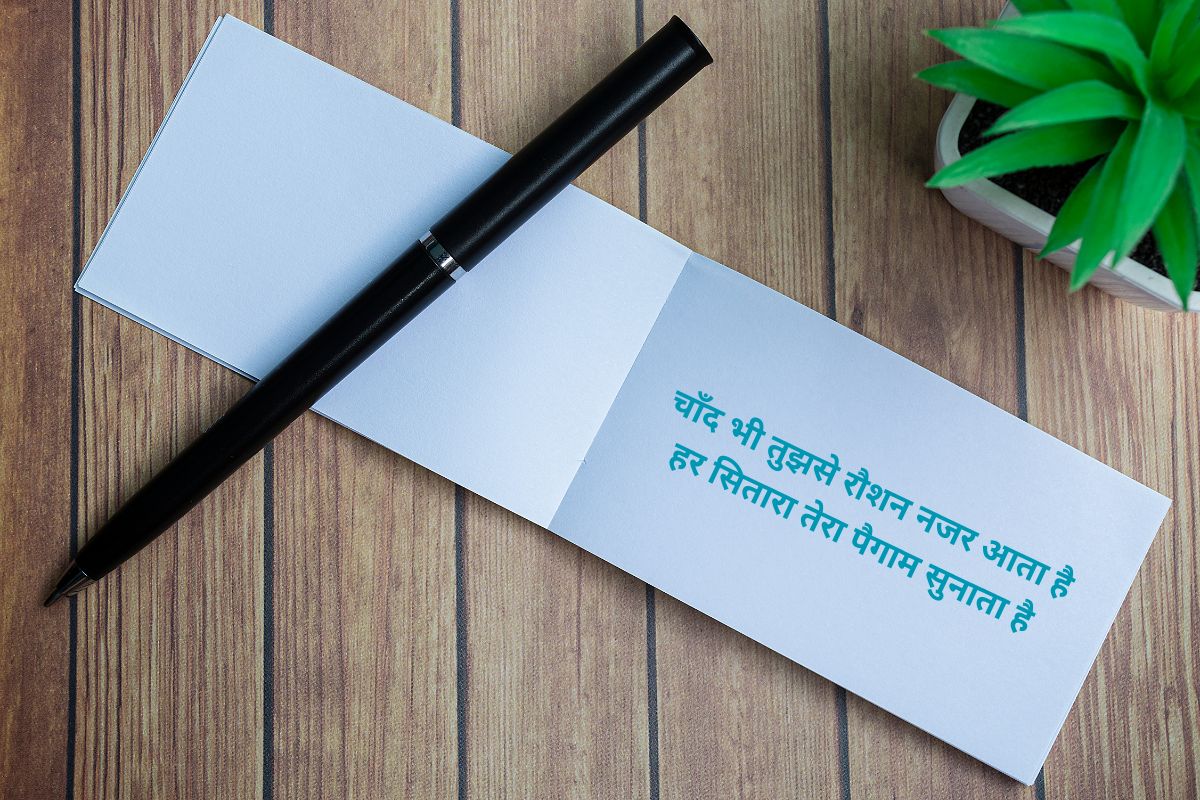 चाँद भी तुझसे रौशन नजर आता है
हर सितारा तेरा पैगाम सुनाता है